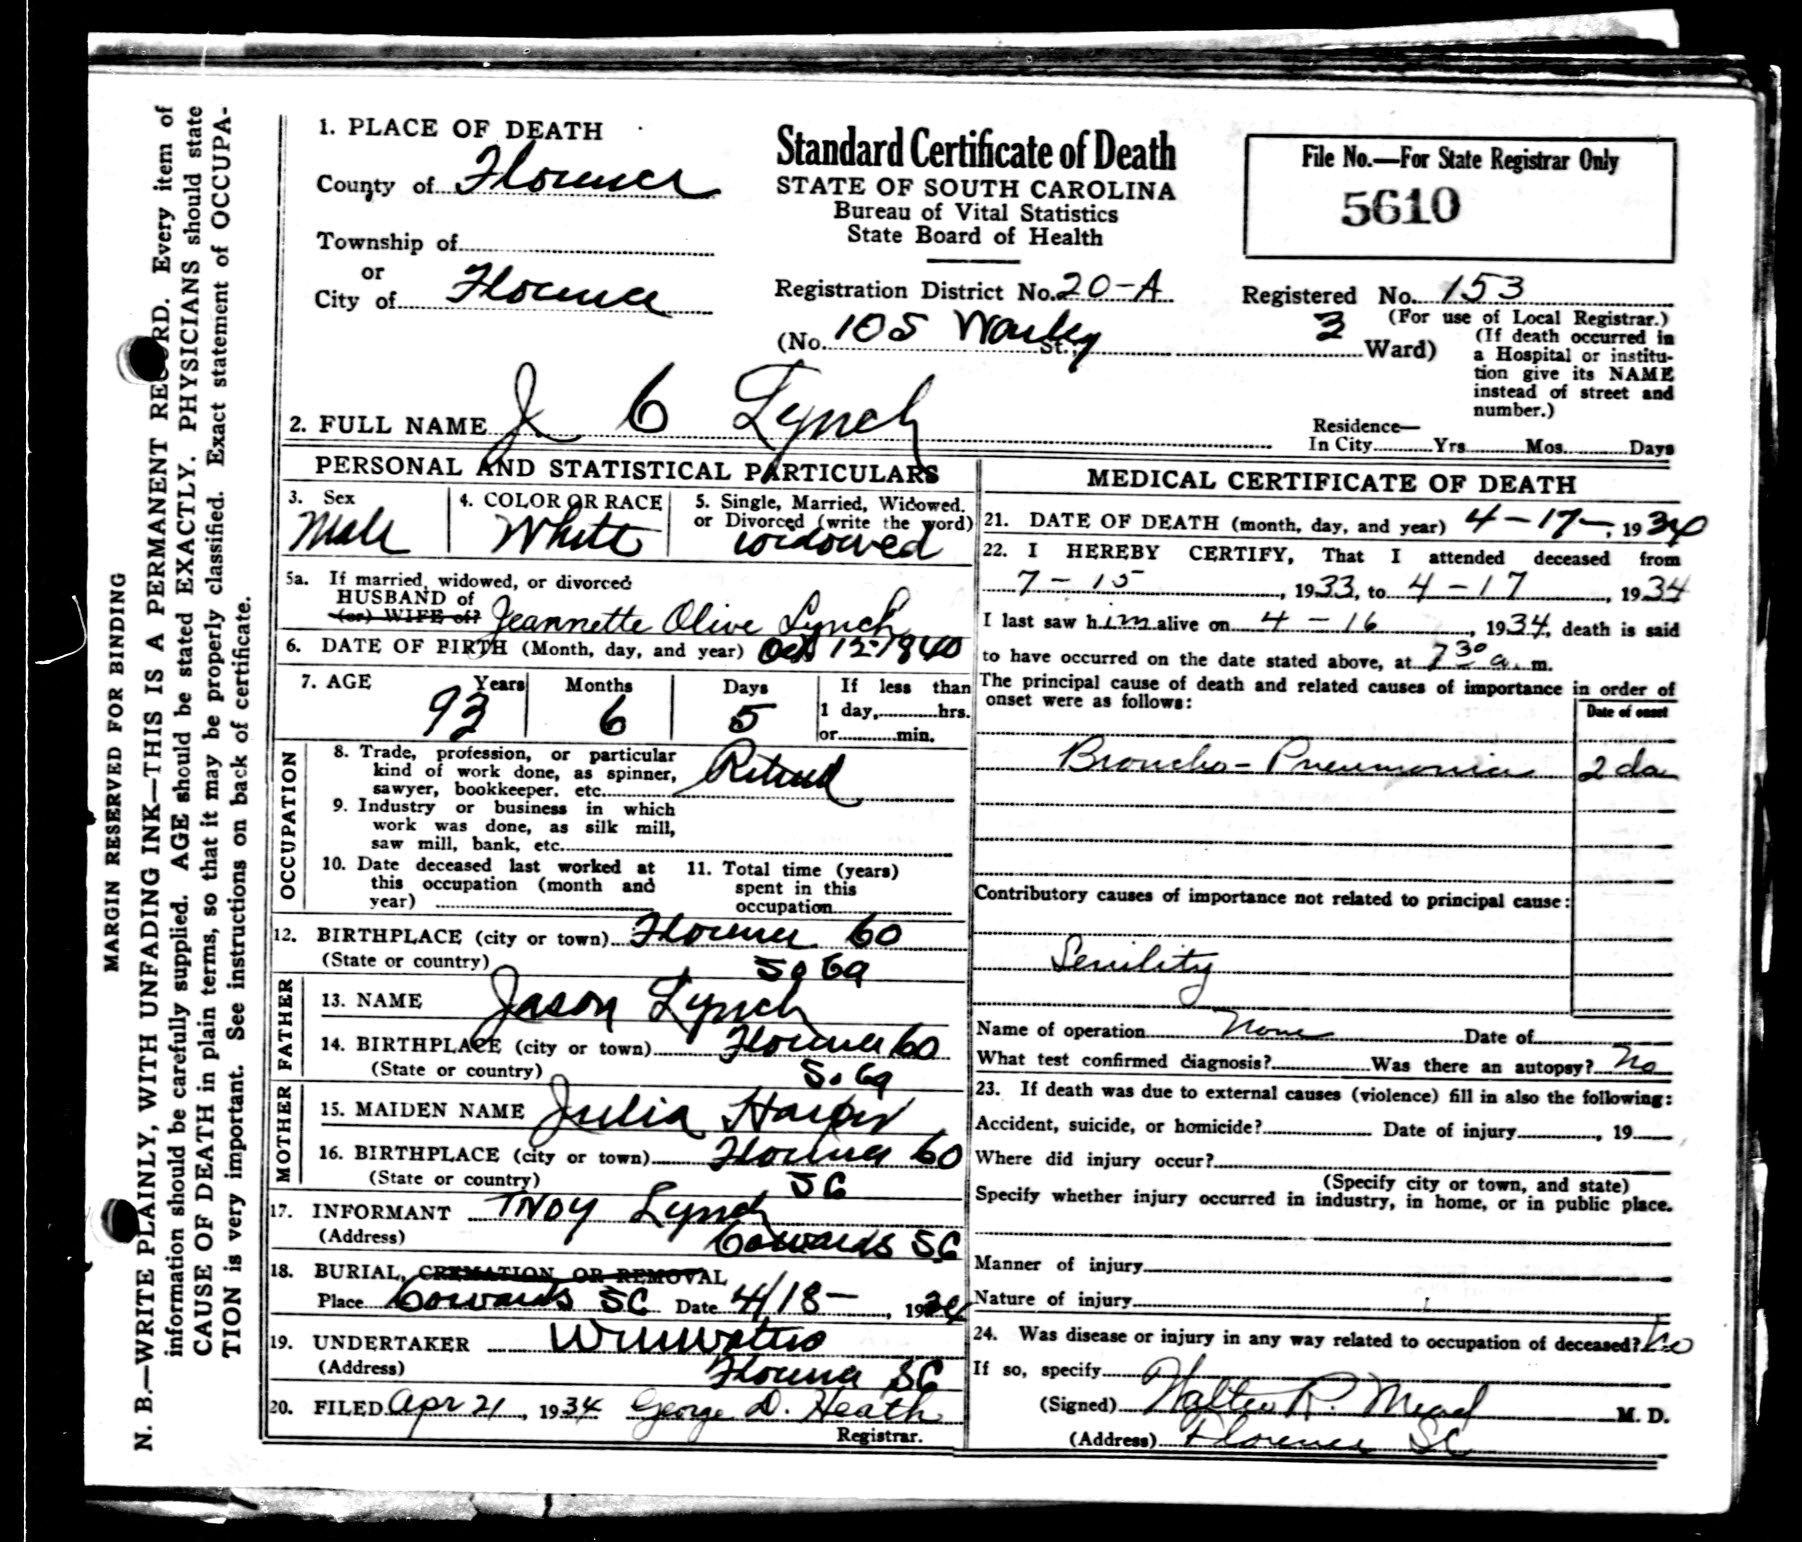 MARGIN RESERVED FOR BINDING
N. B.—WRITE PLAINLY, WITH UNFADING INK—THIS IS A PERMANENT RECORD. Every item of
information should be carefully supplied. AGE should be stated EXACTLY. PHYSICIANS should state
CAUSE OF DEATH in plain terms, so that it may be properly classified. Exact statement of OCCUPA-
TION is very important. See instructions on back of certificate.
1. PLACE OF DEATH
County of Florence
Township of
or
City of Florence
Standard Certificate of Death
STATE OF SOUTH CAROLINA
Bureau of Vital Statistics
State Board of Health
File No.—For State Registrar Only
5610
Registration District No. 20-A
Registered No. 153
(For use of Local Registrar.)
(No. 105 St.; 3 Ward)
(If death occurred in
a Hospital or institu-
tion give its NAME
instead of street and
number.)
2. FULL NAME J C Lynch
Residence—
In City Yrs Mos. Days
PERSONAL AND STATISTICAL PARTICULARS
3. Sex
Male
4. COLOR OR RACE
White
5. Single, Married, Widowed,
or Divorced (write the word)
widowed
5a. If married, widowed, or divorced
HUSBAND of
(or) WIFE of? Jeannette Olive Lynch
6. DATE OF BIRTH (Month, day, and year) Oct 12-1840
7. AGE Years Months Days If less than
93 6 5 1 day, hrs.
or min.
OCCUPATION
8. Trade, profession, or particular
kind of work done, as spinner,
sawyer, bookkeeper, etc. Retired
9. Industry or business in which
work was done, as silk mill,
saw mill, bank, etc.
10. Date deceased last worked at
this occupation (month and
year)
11. Total time (years)
spent in this
occupation
12. BIRTHPLACE (city or town) Florence Co
(State or country) So Ca
FATHER
13. NAME Jason Lynch
14. BIRTHPLACE (city or town) Florence Co
(State or country) So Ca
MOTHER
15. MAIDEN NAME Julia Harper
16. BIRTHPLACE (city or town) Florence Co
(State or country) SC
17. INFORMANT Troy Lynch
(Address) Cowards SC
18. BURIAL, CREMATION OR REMOVAL
Place Cowards SC Date 4/18—, 1934
19. UNDERTAKER
(Address) Florence SC
20. FILED Apr 21, 1934 George D. Heath
Registrar.
MEDICAL CERTIFICATE OF DEATH
21. DATE OF DEATH (month, day, and year) 4-17-, 1934
22. I HEREBY CERTIFY, That I attended deceased from
7-15, 1933, to 4-17, 1934
I last saw him alive on 4-16, 1934, death is said
to have occurred on the date stated above, at 7 30 a. m.
The principal cause of death and related causes of importance in order of
onset were as follows:
Date of onset
Broncho-Pneumonia 2 da
Contributory causes of importance not related to principal cause:
Senility
Name of operation None Date of
What test confirmed diagnosis? Was there an autopsy? No
23. If death was due to external causes (violence) fill in also the following:
Accident, suicide, or homicide? Date of injury, 19
Where did injury occur?
(Specify city or town, and state)
Specify whether injury occurred in industry, in home, or in public place.
Manner of injury
Nature of injury
24. Was disease or injury in any way related to occupation of deceased? No
If so, specify
(Signed) Walter R. Mead M. D.
(Address) Florence SC